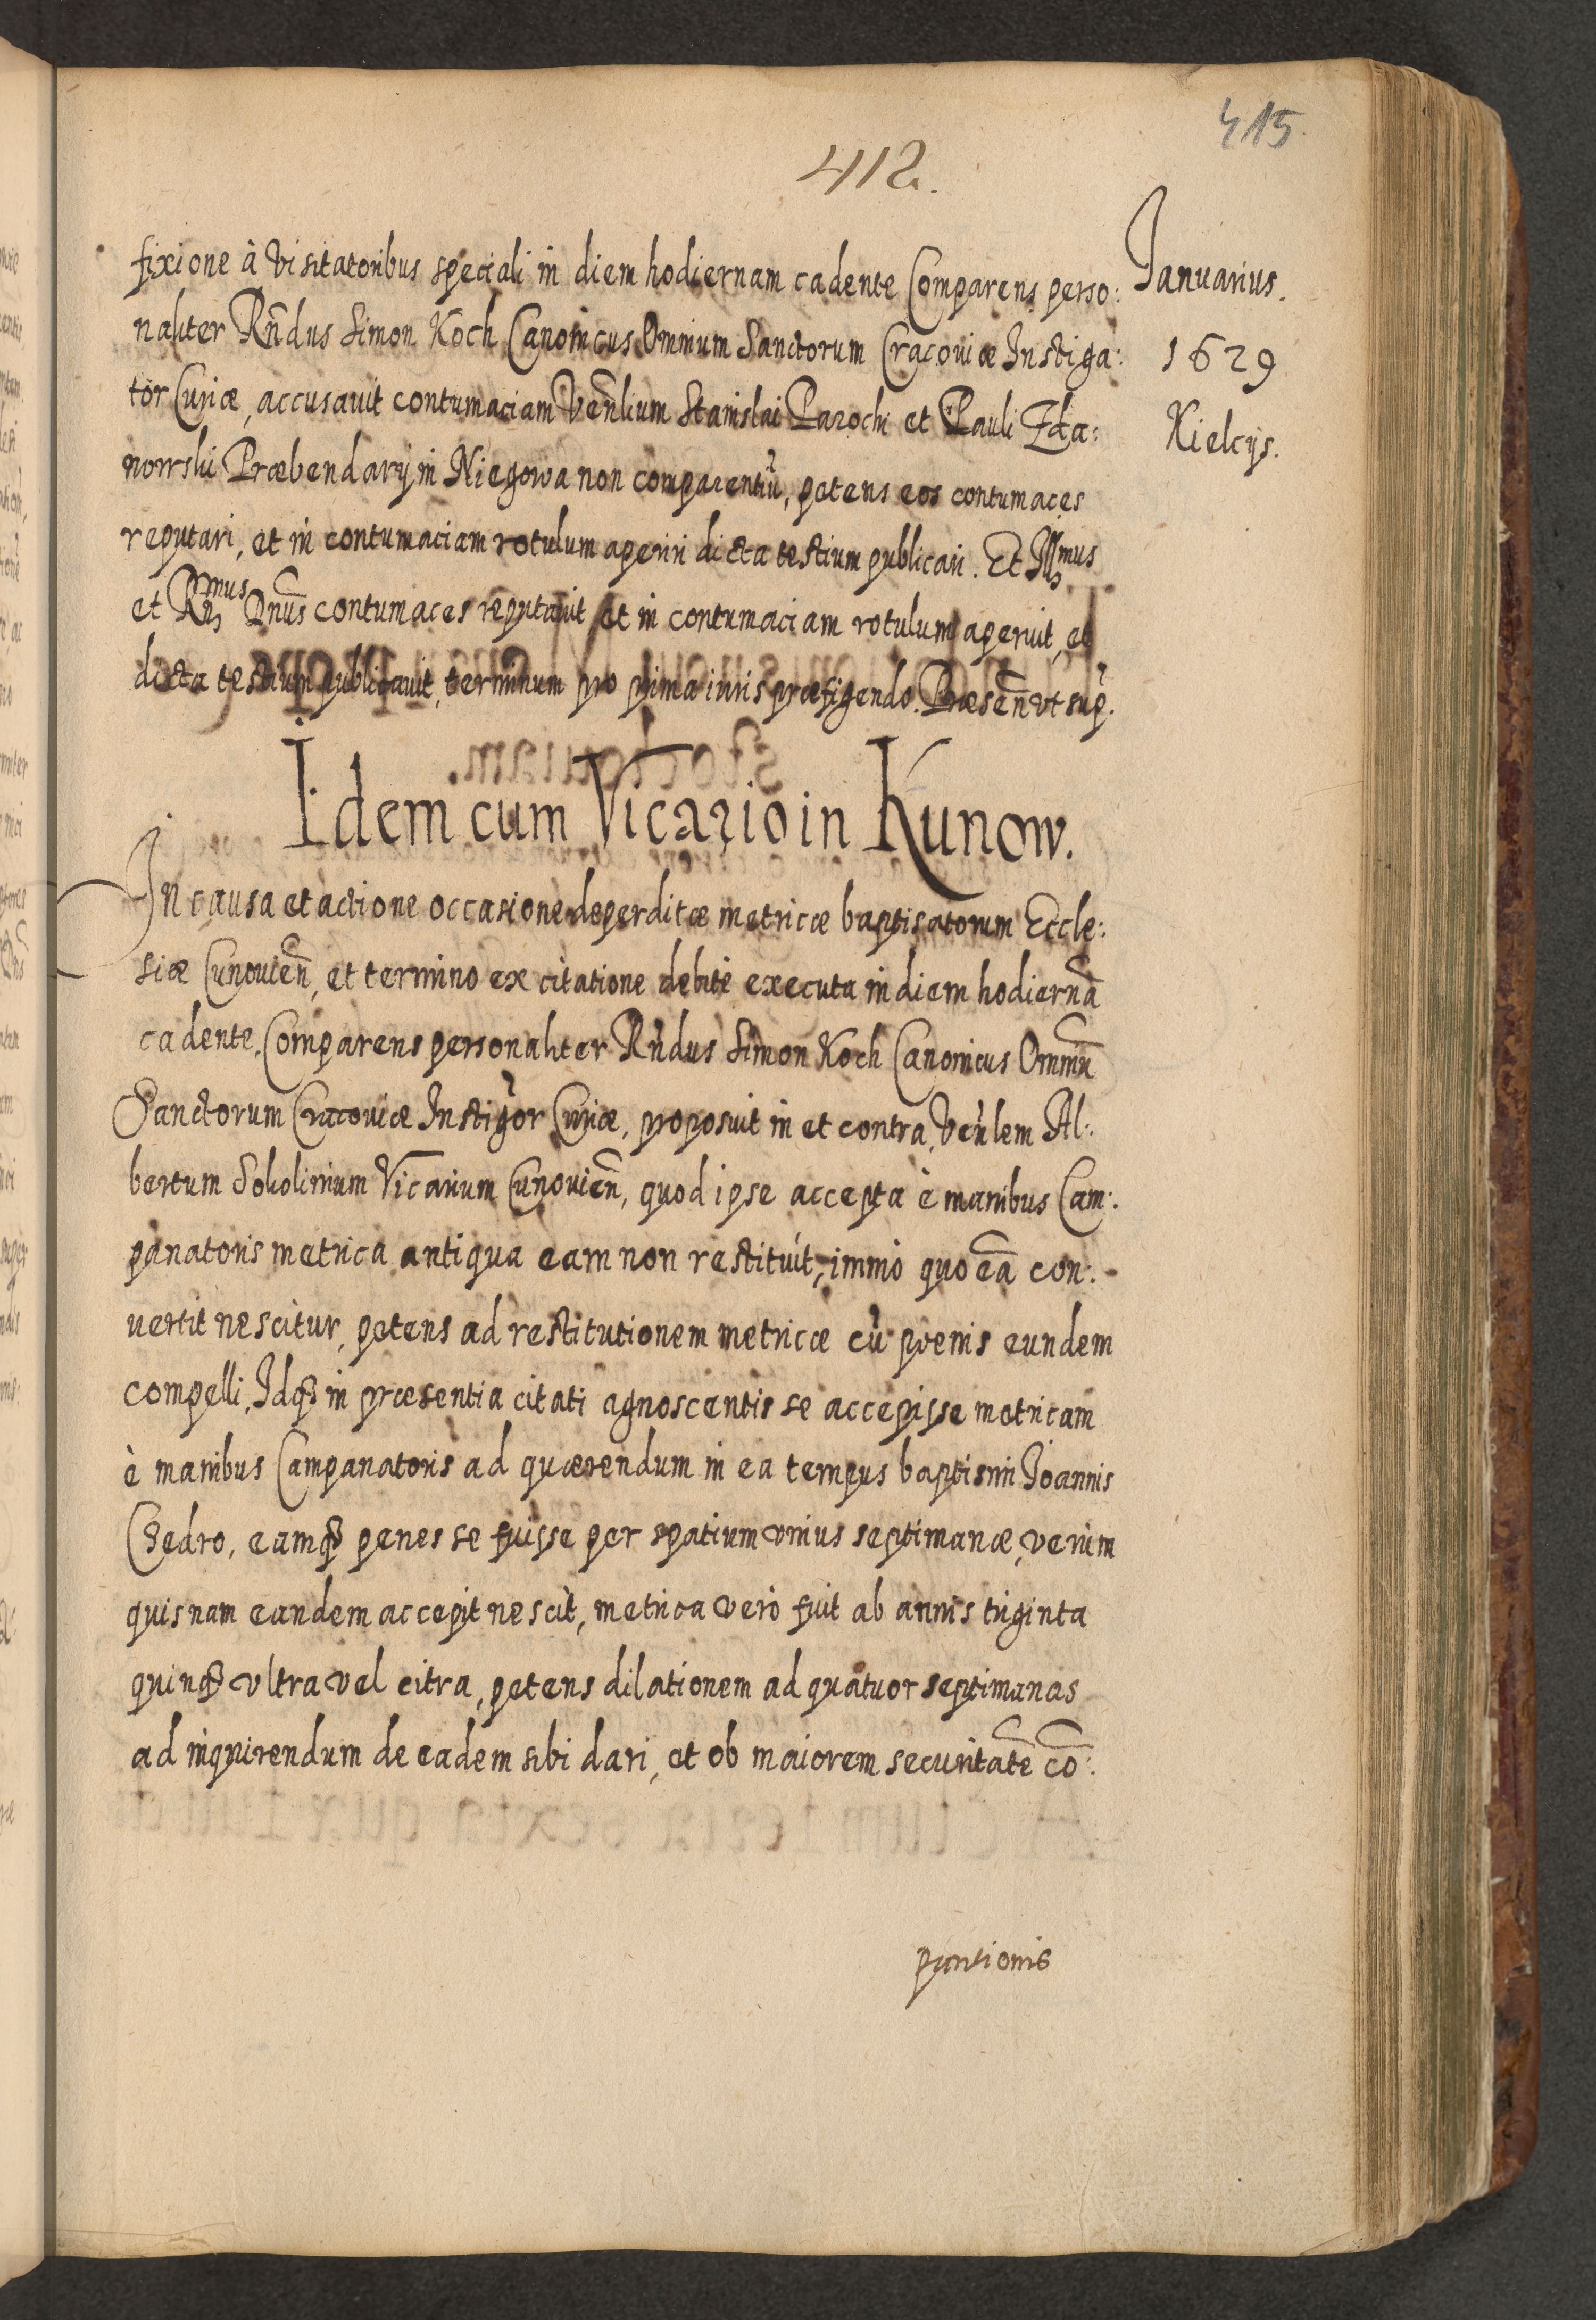 415.
412.
Januarius.
1629
Kielcijs.
fixione à visitatoribus speciali in diem hodiernam cadente Comparens perso:
naliter Rñdus Simon Koch Canonicus Omnium Sanctorum Cracoviæ Instiga:
tor Curiæ, accusavit contumaciam Veñlium Stanislai Parochi et Pauli Zda:
nowski Præbendarij in Niegowa non comparentiũ, petens eos contumaces
reputari, et in contumaciam rotulum aperiri dicta testium publicari. Et Illmus
et Rñmus Dñus contumaces reputavit et in contumaciam rotulum aperuit, et
dicta testium publicavit, terminum pro prima iuris præfigendo. Præseñ vt sup.
Idem cum Vicario in Kunow.
In causa et actione occasione deperditæ metricæ baptisatorum Eccle:
siæ Cunovieñ, et termino ex citatione debitè executa in diem hodiernã
cadente. Comparens personaliter Rñdus Simon Koch Canonicus Omniũ
Sanctorum Cracoviæ Instigor Curiæ, proposuit in et contra Veñlem Al:
bertum Sokolinium Vicarium Cunovieñ, quod ipse accepta è manibus Cam:
panatoris metrica antiqua eam non restituit, immò quo eã con:
uertit nescitur, petens ad restitutionem metricæ cũ pœnis eundem
compelli, Idq3 in præsentia citati agnoscentis se accepisse metricam
è manibus Campanatoris ad quærendum in ea tempus baptismi Joannis
Chedro, eamq3 penes se fuisse per spatium vnius septimanæ, verùm
quisnam eandem accepit nescit, metrica verò fuit ab annis triginta
quinq3 vltra vel citra, petens dilationem ad quatuor septimanas
ad inquirendum de eadem sibi dari, et ob maiorem securitatẽ cõ:
partionis